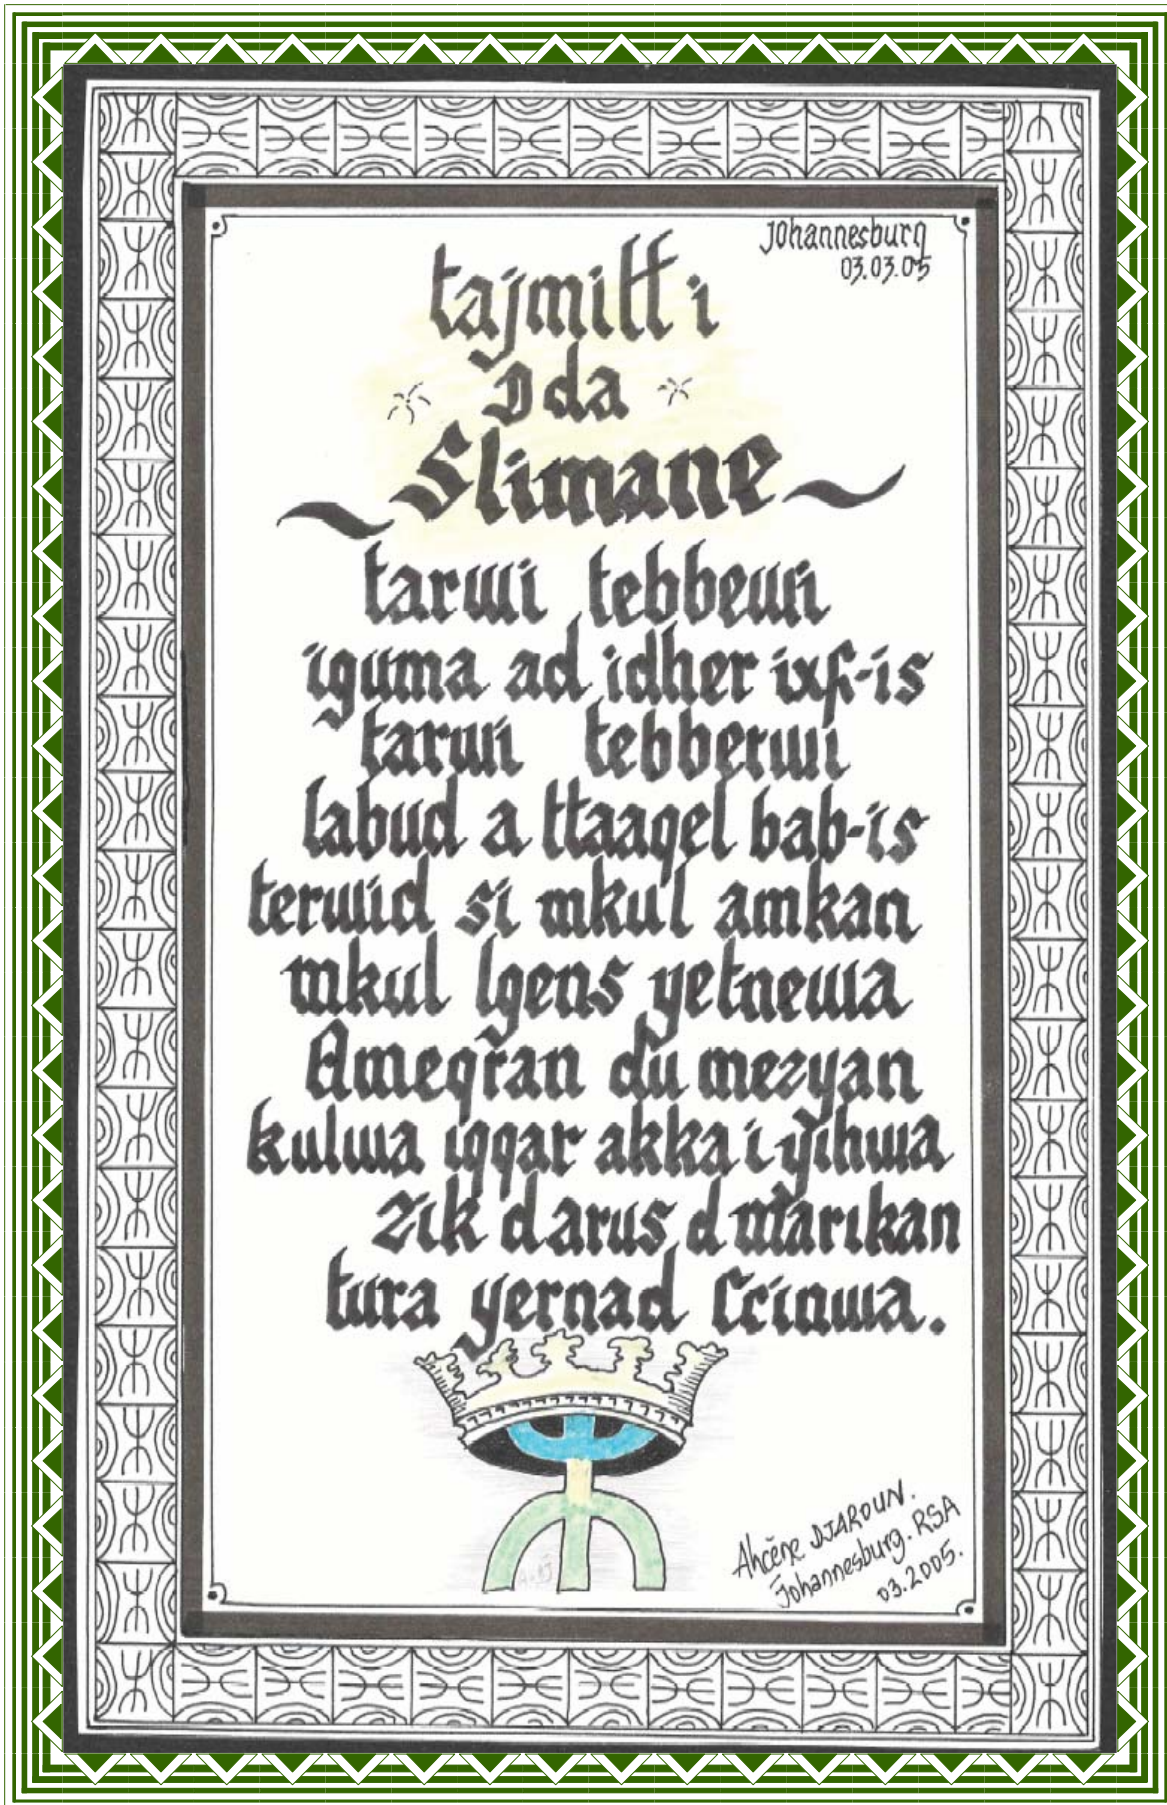 Johannesburg
03.03.05
tajmilt i
Dda
Slimane
tarwi tebberwi
iguma ad idher ixf-is
tarwi tebberwi
labud a ttaaqel bab-is
terwid si mkul amkan
mkul lgens yetnewa
Ameqran du mezyan
kulwa iqqar akka i yihwa
zik d arus d marikan
tura yernad Ccinwa.
Ahcène DJAROUN.
Johannesburg. RSA
03.2005.